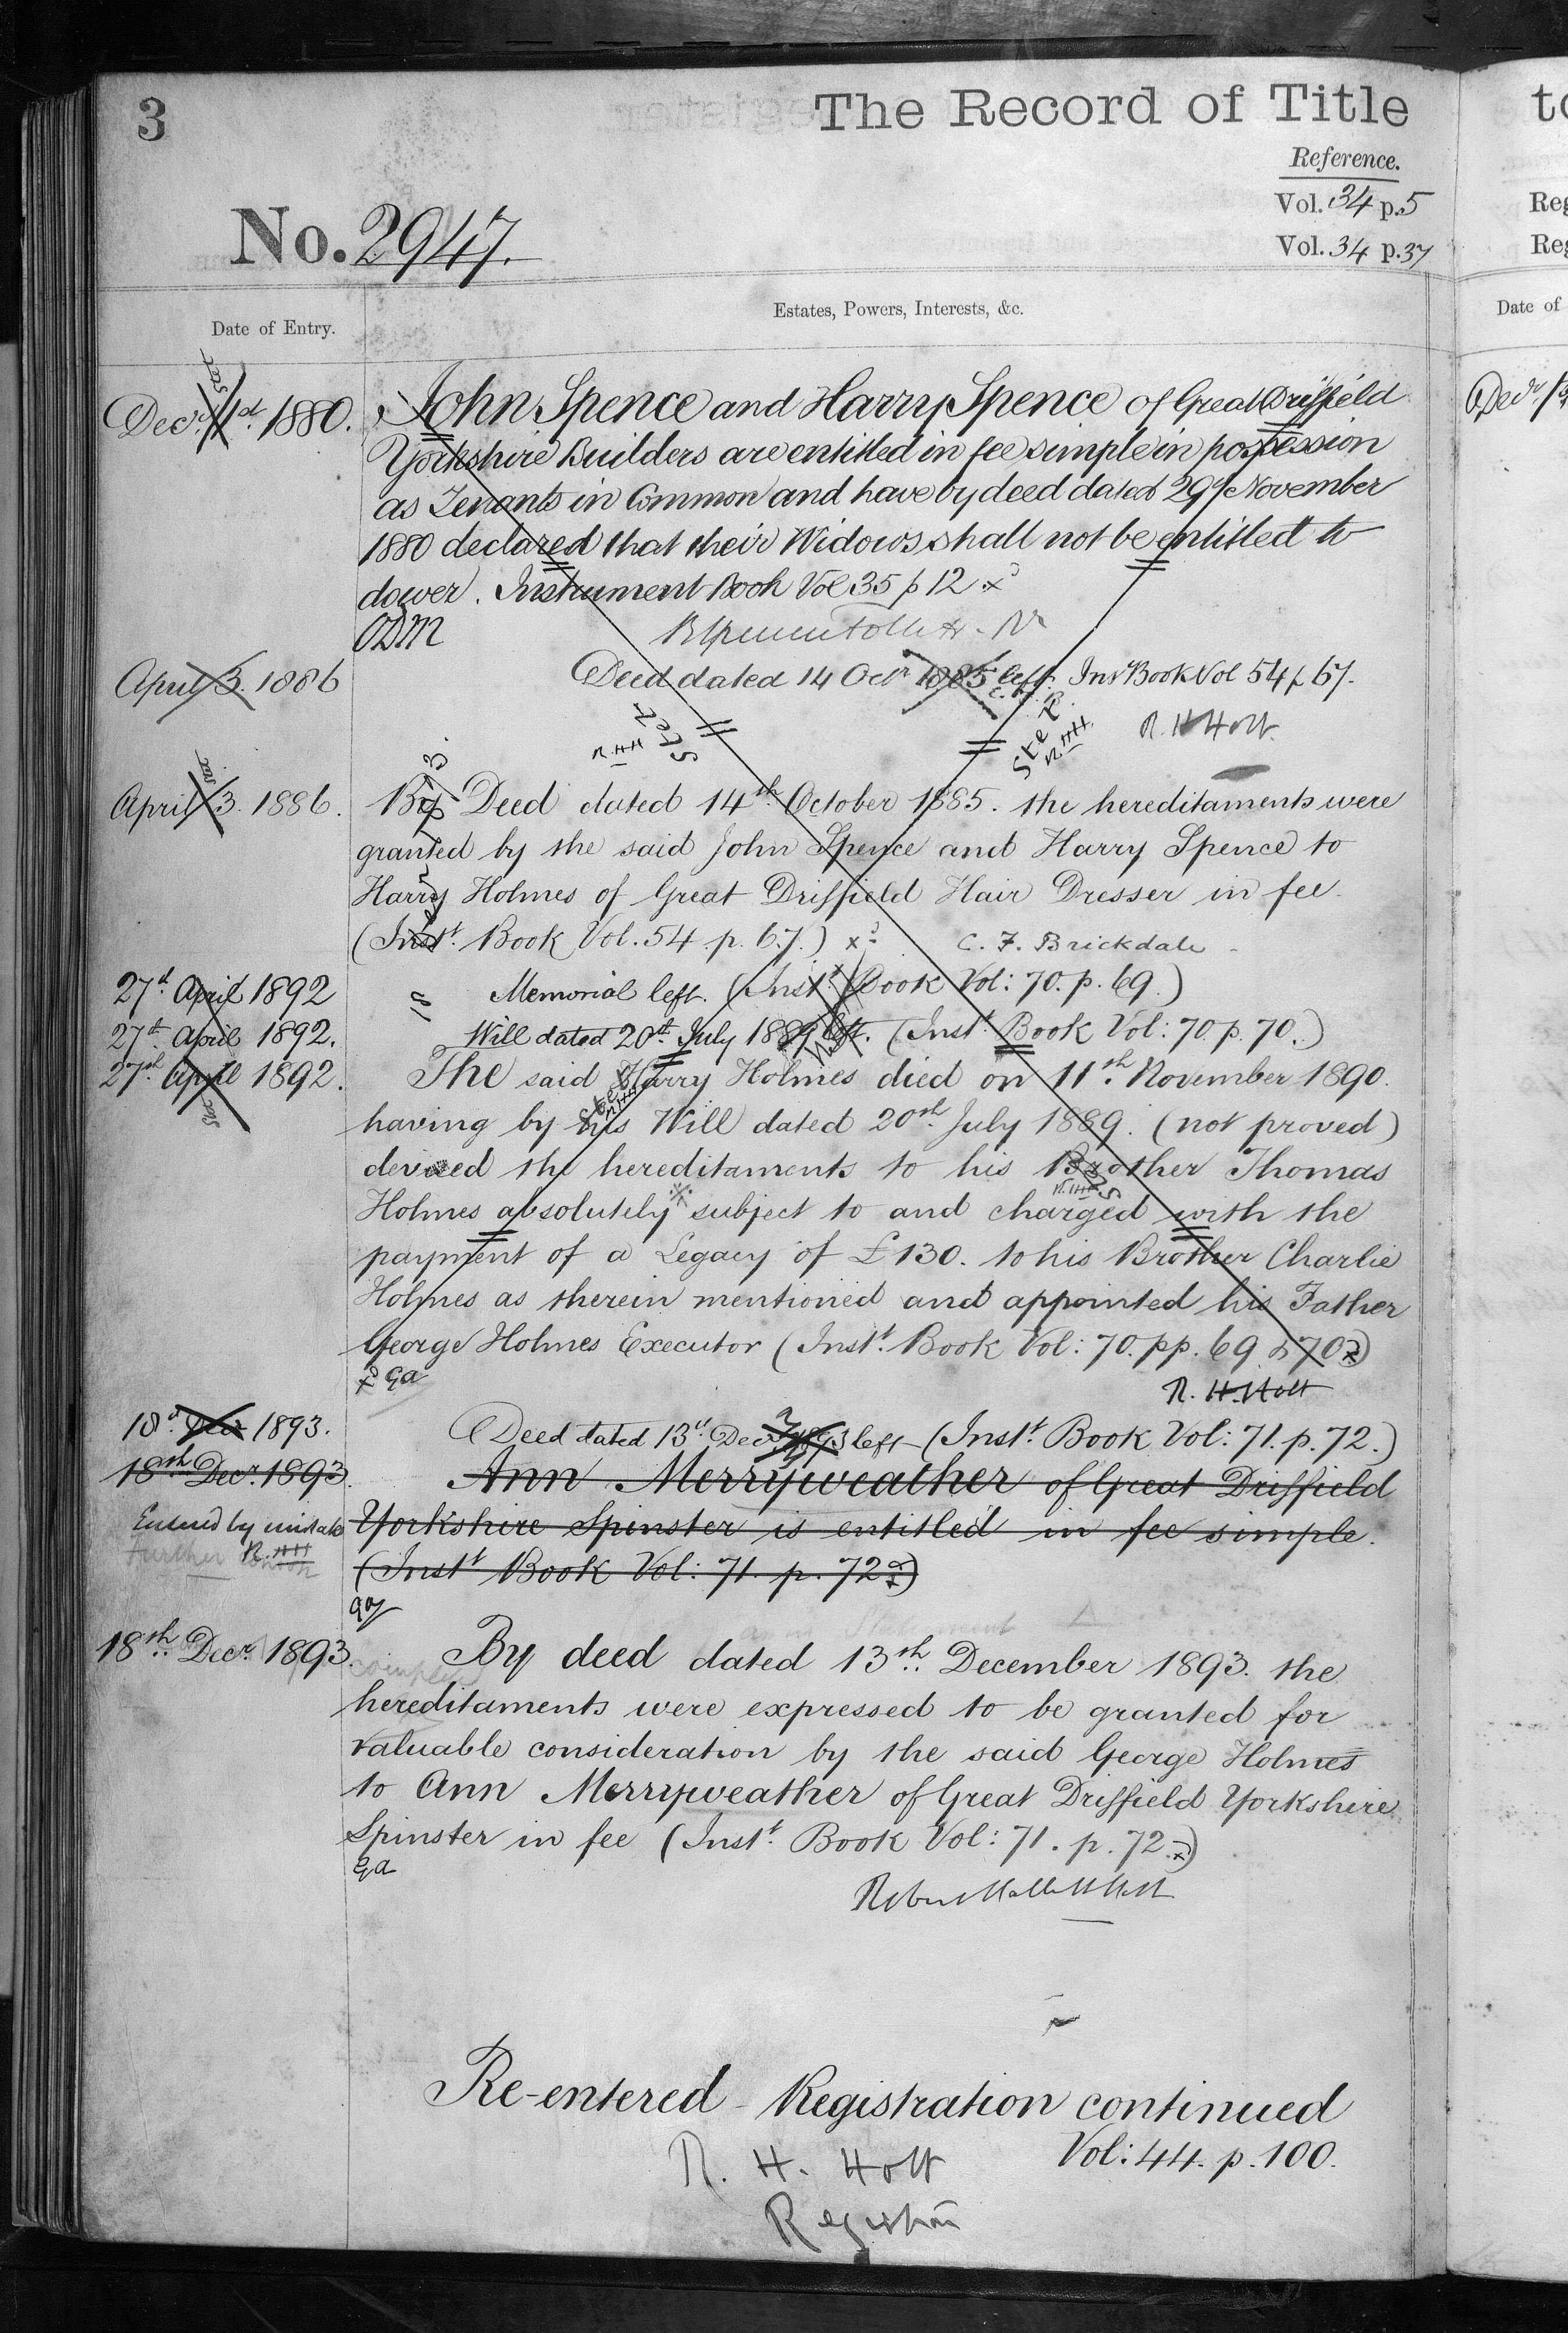 3
The Record of Title
Reference.
Vol. 34 p. 5
Vol. 34 p. 37
No. 2947.
Date of Entry.
Estates, Powers, Interests, &c.
Decr. 1st. 1880. John Spence and Harry Spence of Great Driffield
Yorkshire Builders are entitled in fee simple in possession
as Tenants in Common and have by deed dated 29th November
1880 declared that their Widows shall not be entitled to
dower. Instrument Book Vol 35 p 12 x
ODM
April 3. 1886 Deed dated 14 Octr 1885 left. Inst Book Vol 54 p 67.
Ste R. R. H. Holt
RHH
April 3. 1886. By Deed dated 14th. October 1885. the hereditaments were
granted by the said John Spence and Harry Spence to
Harry Holmes of Great Driffield Hair Dresser in fee.
(Instt. Book Vol. 54. p. 67.) x C. F. Brickdale
27th April 1892 Memorial left. (Instt. Book Vol: 70. p. 69.)
27th April 1892. Will dated 20th July 1889 left. (Instt. Book Vol: 70. p. 70.)
27th April 1892. The said Harry Holmes died on 11th. November 1890.
having by his Will dated 20th July 1889. (not proved)
devised the hereditaments to his Brother Thomas
Holmes absolutely subject to and charged with the
payment of a Legacy of £130. to his Brother Charlie
Holmes as therein mentioned and appointed his Father
George Holmes Executor (Instt. Book Vol: 70. pp. 69 & 70 x)
x Ga
R. H. Holt
18th Decr 1893. Deed dated 13th Decr 1893 left (Instt. Book Vol: 71. p. 72.)
18th Decr. 1893. Ann Merryweather of Great Driffield
Entered by mistake Yorkshire Spinster is entitled in fee simple.
R.HH
(Instt Book Vol: 71. p. 72 x)
Ga
18th Decr. 1893. By deed dated 13th. December 1893. the
hereditaments were expressed to be granted for
valuable consideration by the said George Holmes
to Ann Merryweather of Great Driffield Yorkshire
Spinster in fee (Instt. Book Vol: 71. p. 72 x)
Ga
Re-entered - Registration continued
Vol: 44. p. 100.
R. H. Holt
to
Reg
Reg
Date of
Decr